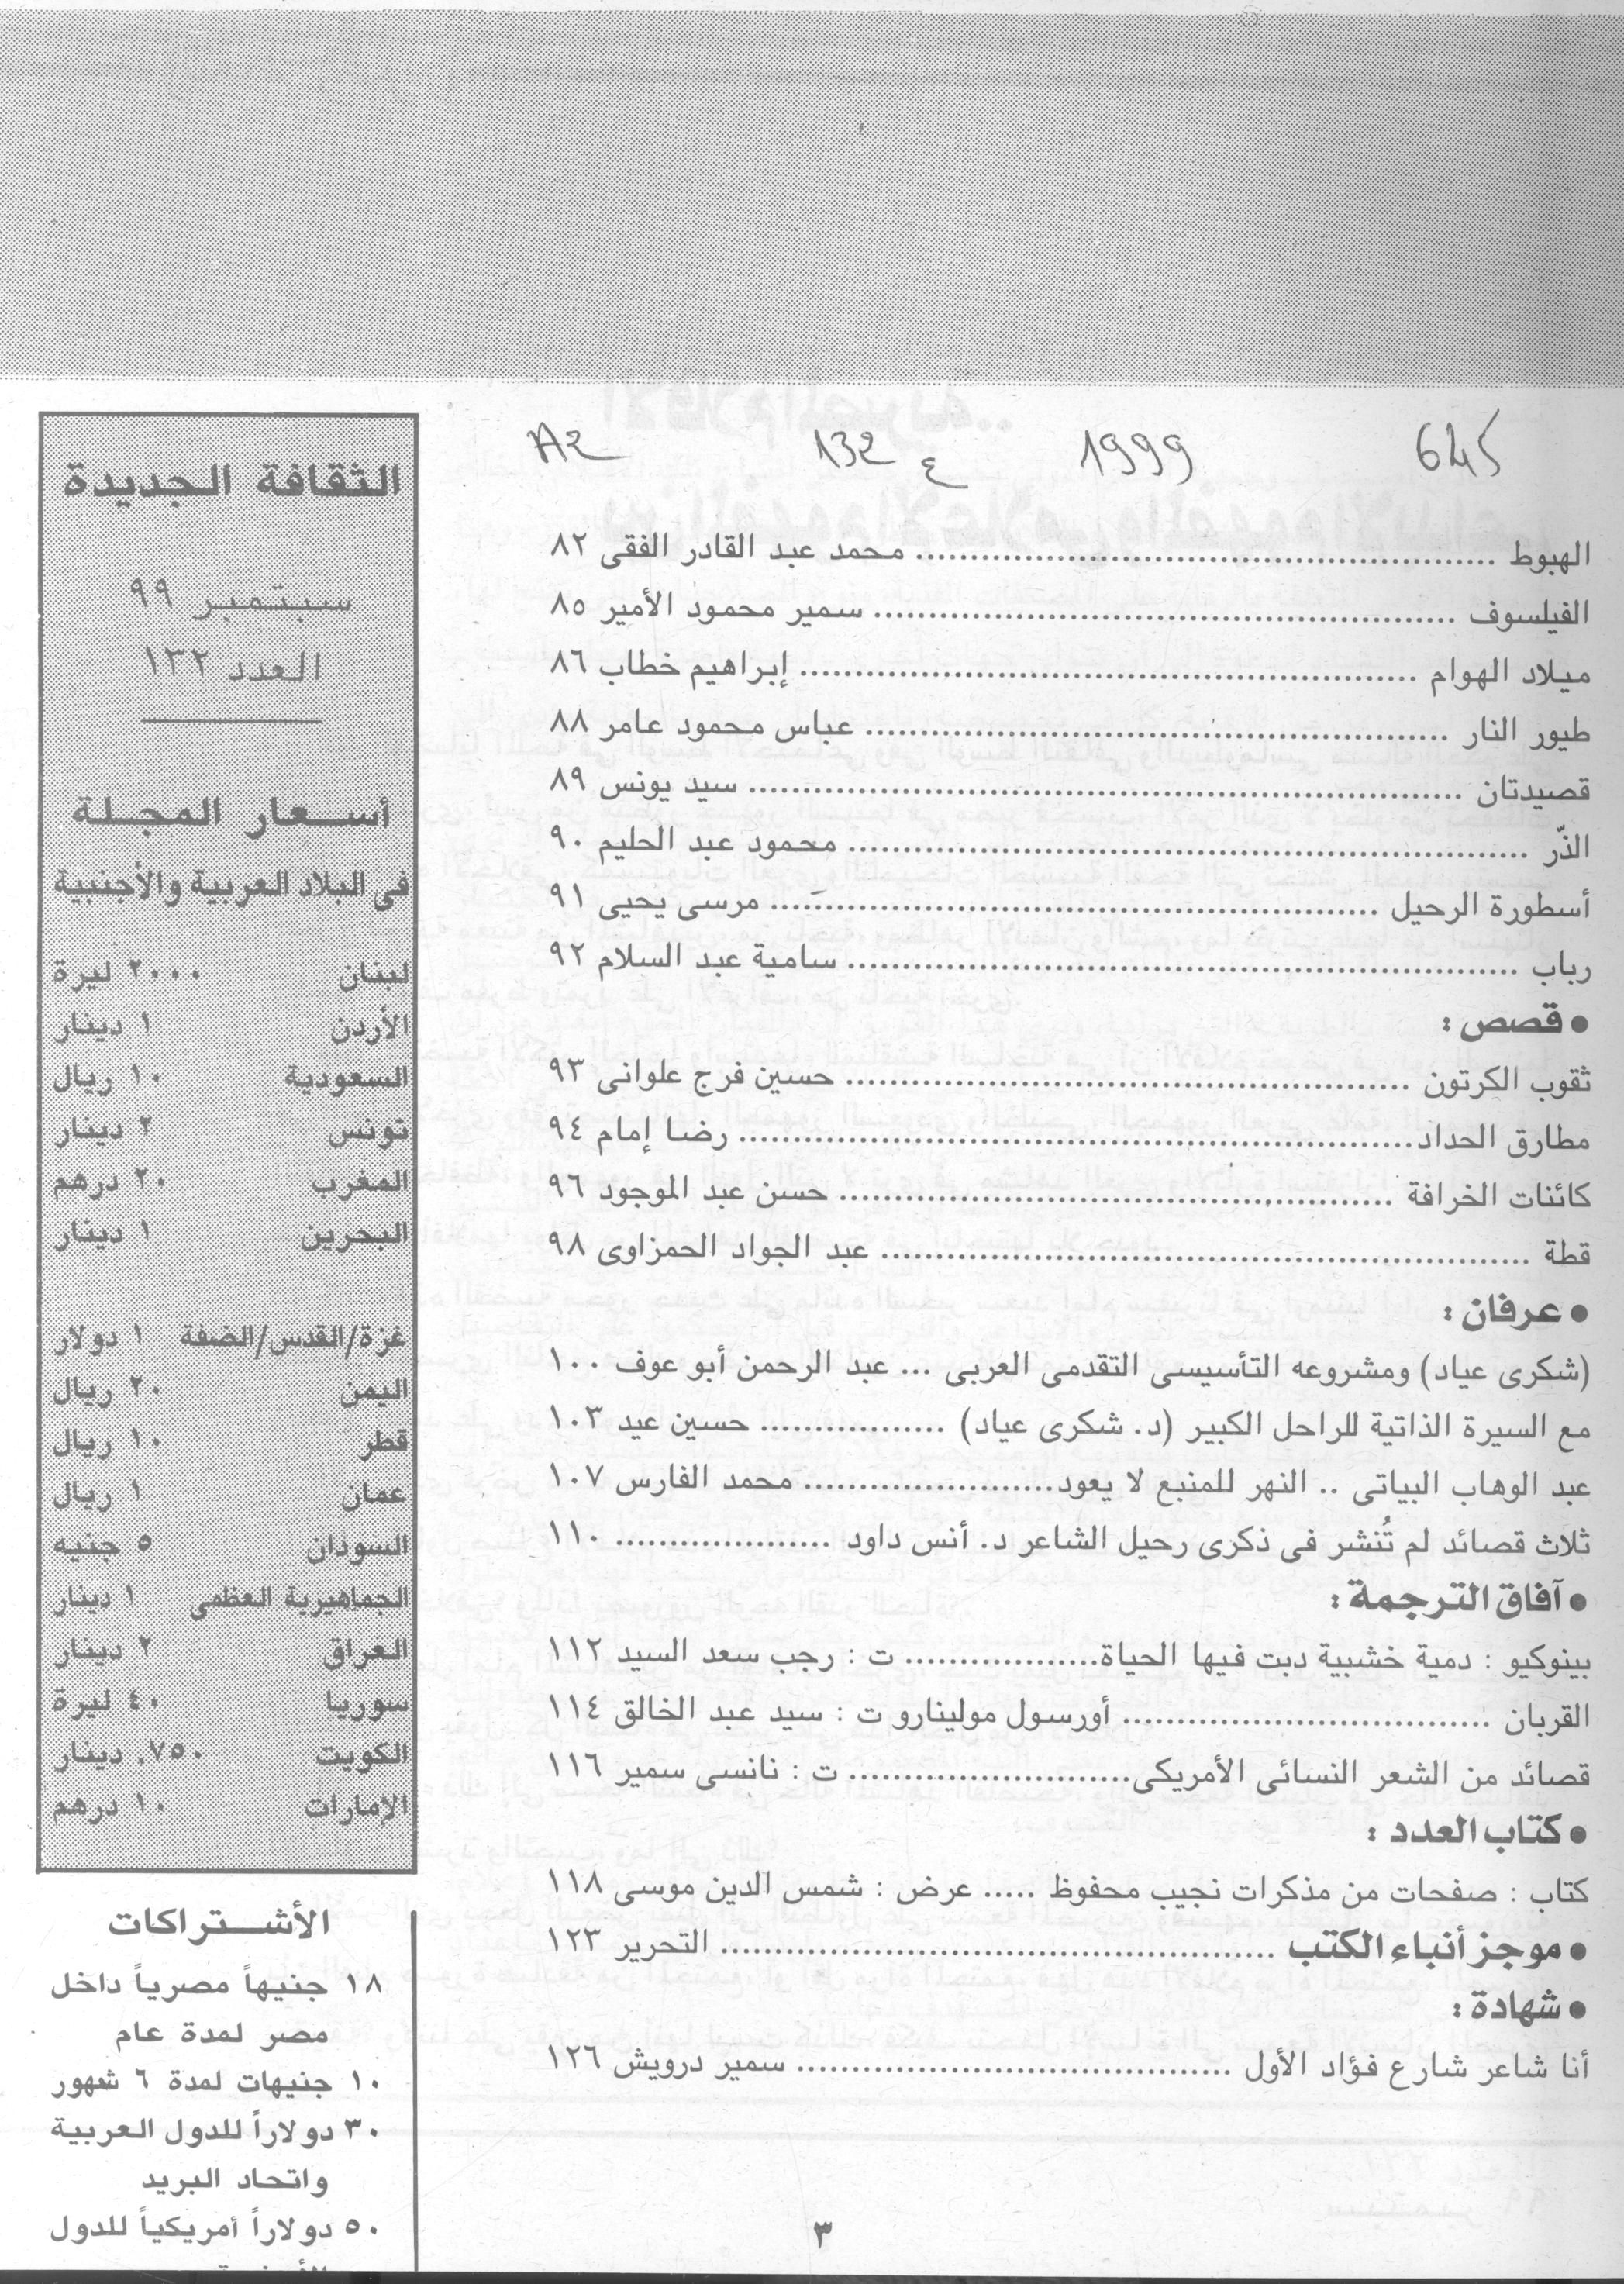 645 1999 ع 132 A2
الهبوط ........ محمد عبد القادر الفقى ٨٢
الفيلسوف ........ سمير محمود الأمير ٨٥
ميلاد الهوام ........ إبراهيم خطاب ٨٦
طيور النار ........ عباس محمود عامر ٨٨
قصيدتان ........ سيد يونس ٨٩
الذّر ........ محمود عبد الحليم ٩٠
أسطورة الرحيل ........ مرسى يحيى ٩١
رباب ........ سامية عبد السلام ٩٢
● قصص :
ثقوب الكرتون ........ حسين فرج علوانى ٩٣
مطارق الحداد ........ رضا إمام ٩٤
كائنات الخرافة ........ حسن عبد الموجود ٩٦
قطة ........ عبد الجواد الحمزاوى ٩٨
● عرفان :
(شكرى عياد) ومشروعه التأسيسى التقدمى العربى ... عبد الرحمن أبو عوف ١٠٠
مع السيرة الذاتية للراحل الكبير (د. شكرى عياد) ........ حسين عيد ١٠٣
عبد الوهاب البياتى .. النهر للمنبع لا يعود ........ محمد الفارس ١٠٧
ثلاث قصائد لم تُنشر فى ذكرى رحيل الشاعر د. أنس داود ........ ١١٠
● آفاق الترجمة :
بينوكيو : دمية خشبية دبت فيها الحياة ........ ت : رجب سعد السيد ١١٢
القربان ........ أورسول مولينارو ت : سيد عبد الخالق ١١٤
قصائد من الشعر النسائى الأمريكى ........ ت : نانسى سمير ١١٦
● كتاب العدد :
كتاب : صفحات من مذكرات نجيب محفوظ ..... عرض : شمس الدين موسى ١١٨
● موجز أنباء الكتب ........ التحرير ١٢٣
● شهادة :
أنا شاعر شارع فؤاد الأول ........ سمير درويش ١٢٦
الثقافة الجديدة
سبتمبر ٩٩
العدد ١٣٢
أسعار المجلة
فى البلاد العربية والأجنبية
لبنان ٢٠٠٠ ليرة
الأردن ١ دينار
السعودية ١٠ ريال
تونس ٢ دينار
المغرب ٢٠ درهم
البحرين ١ دينار
غزة/القدس/الضفة ١ دولار
اليمن ٢٠ ريال
قطر ١٠ ريال
عمان ١ ريال
السودان ٥ جنيه
الجماهيرية العظمى ١ دينار
العراق ٢ دينار
سوريا ٤٠ ليرة
الكويت ٧٥٠, دينار
الإمارات ١٠ درهم
الأشتراكات
١٨ جنيهاً مصرياً داخل
مصر لمدة عام
١٠ جنيهات لمدة ٦ شهور
٣٠ دولاراً للدول العربية
واتحاد البريد
٥٠ دولاراً أمريكياً للدول
٣